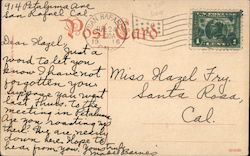 914 Petaluma Ave
San Rafael Cal.
SAN RAFAEL
Post Card
Dear Hazel,
Just a
word to let you
know I have not
forgotten your
last, Thurs. to the
meeting in Petaluma
Are you roasting up
there? We are nearly
down here. Hope to
hear from you.
Miss Hazel Fry.
Santa Rosa
Cal.